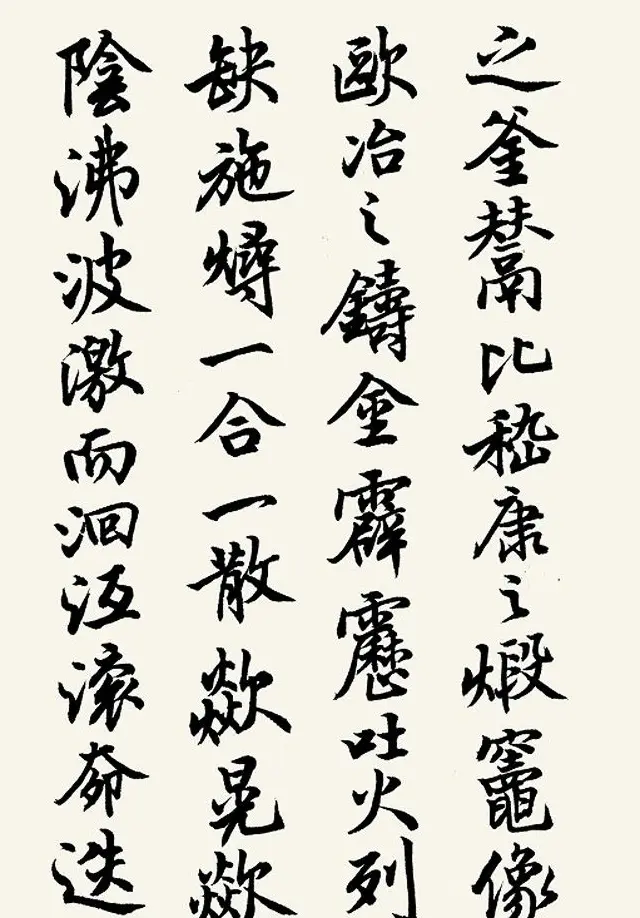 之釜鬵比嵇康之煅竈像
歐冶之鑄金霹靂吐火列
缺施燖一合一散歘晃歘
陰沸波激而洄沍滾奔迭